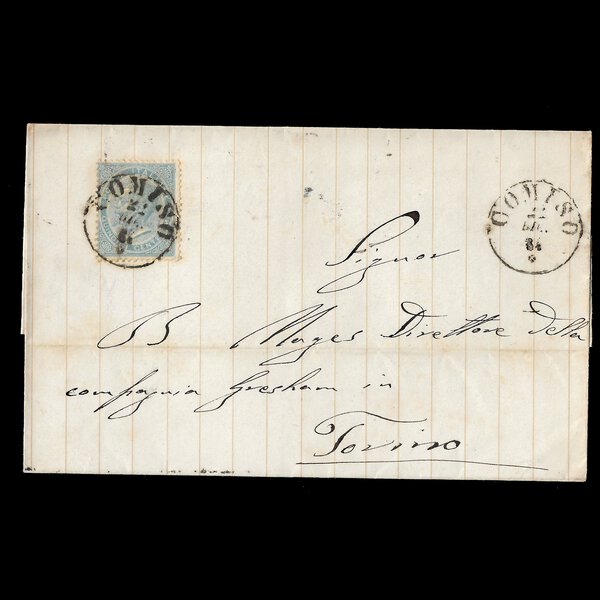 COMISO
COMISO
DIC.
64
Signor
B Mages Direttore della
compagnia Gresham in
Torino